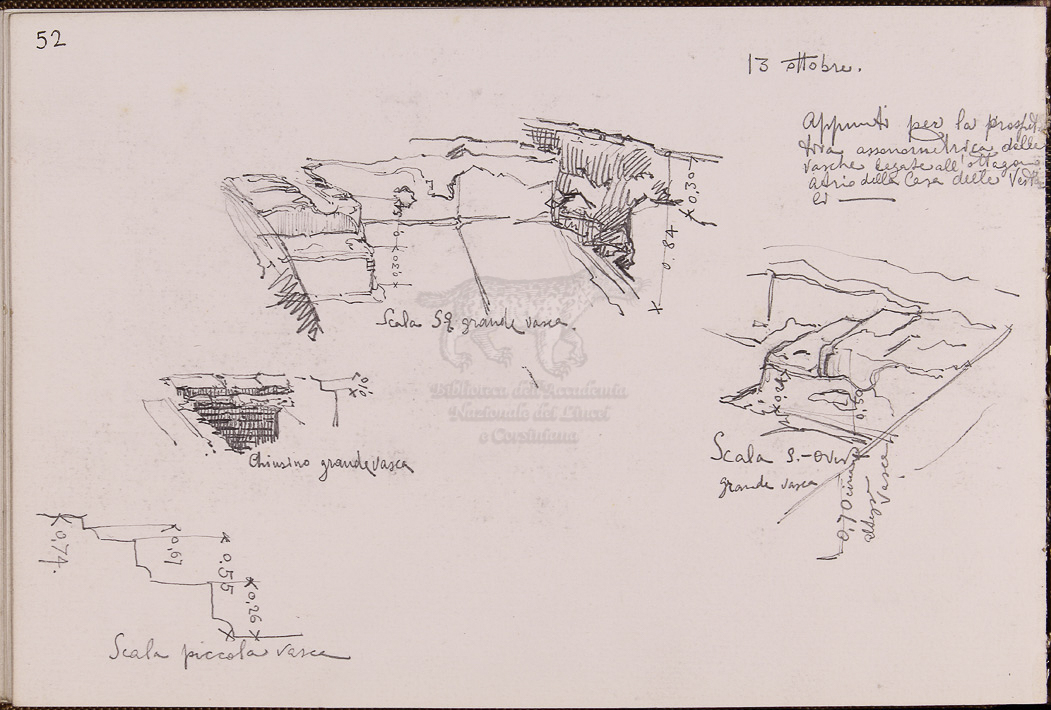 52
13 ottobre.
Appunti per la prospet
tiva assonometrica delle
vasche legate all'ottagono
atrio della Casa delle Vesta
li
0,307
0.84
0.20
Scala SE grande vasca.
Chiusino grande vasca
Scala S.-Ovest
grande vasca
0,50
0,70 circa
altezza
vasca
0,74.
0,61
0.55
0,26
Scala piccola vasca
Biblioteca dell'Accademia
Nazionale dei Lincei
e Corsiniana